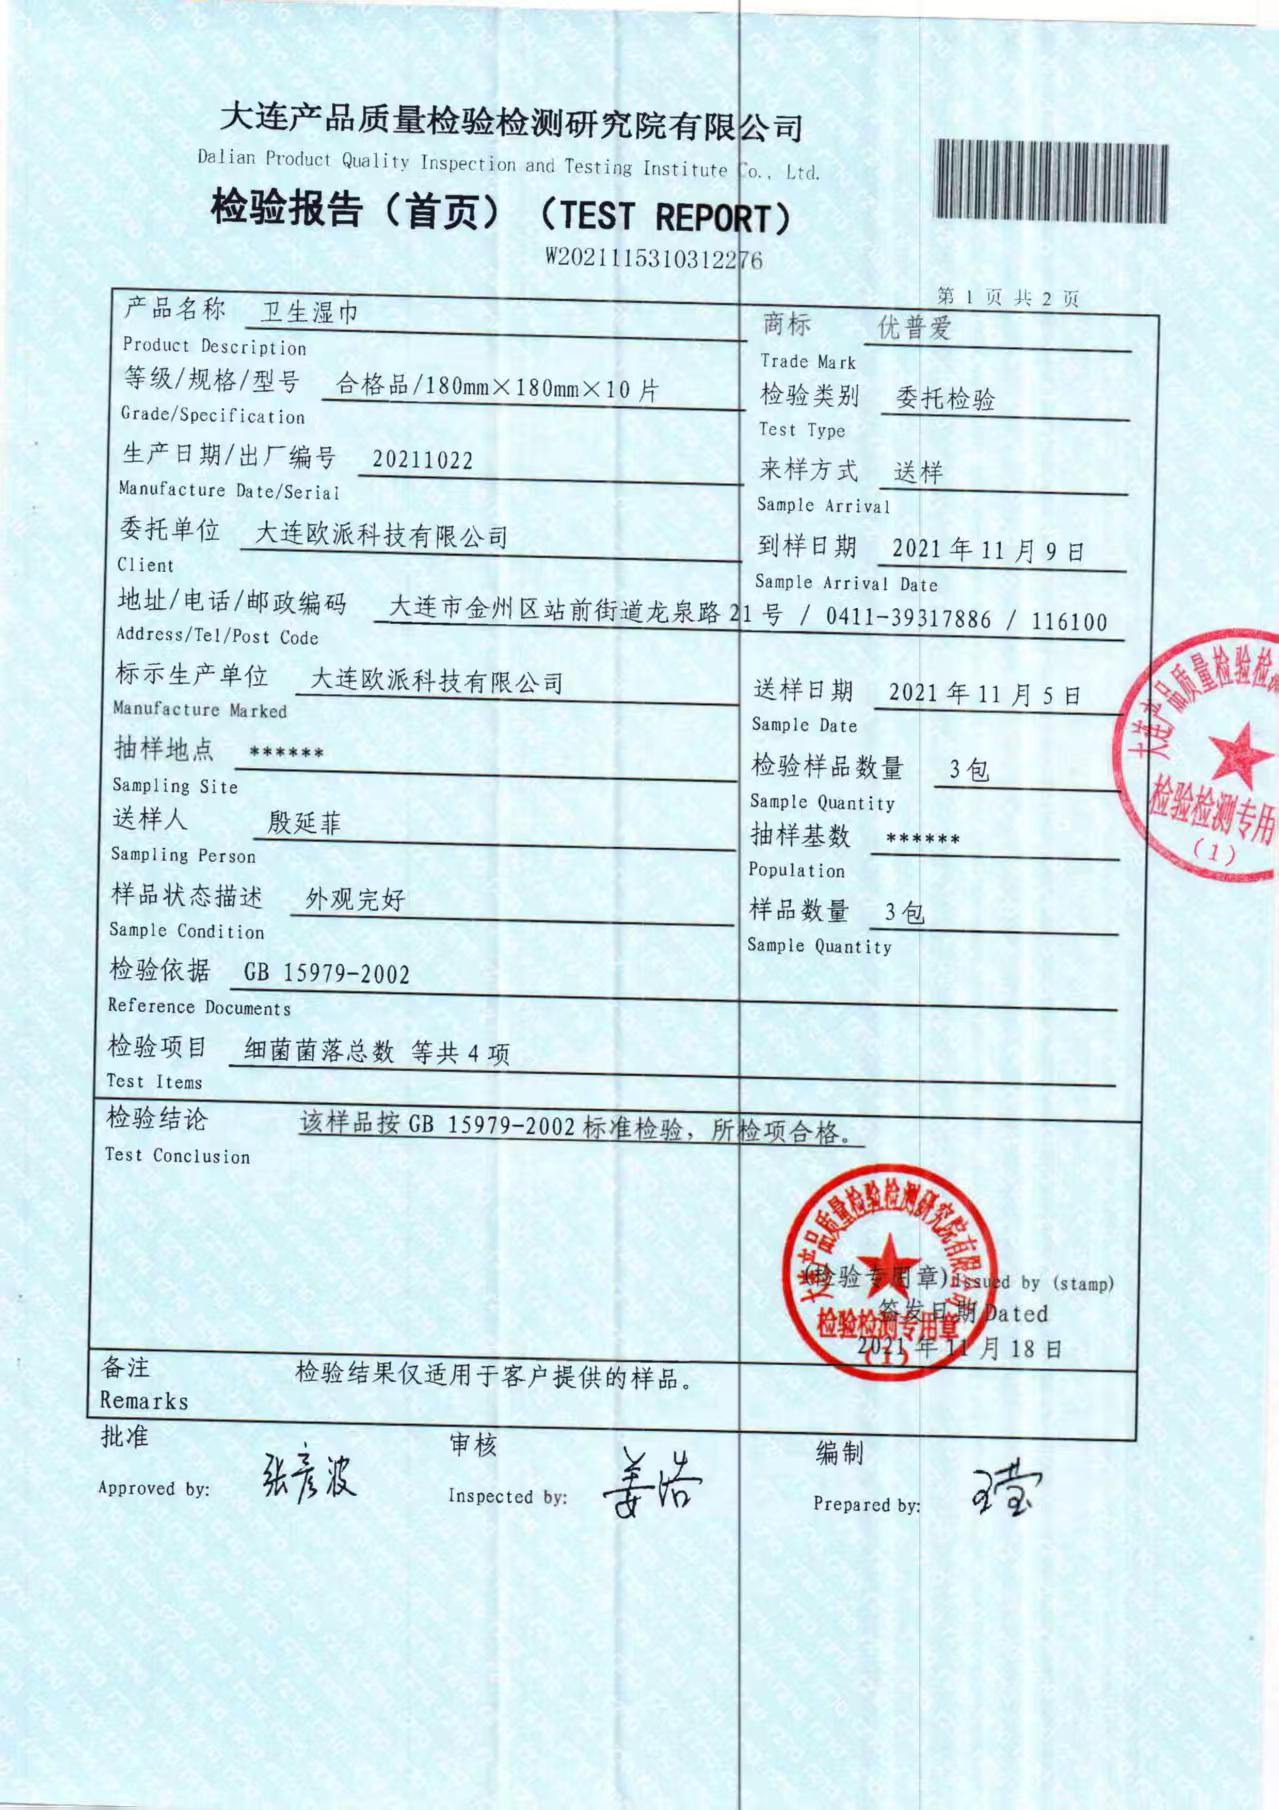 大连产品质量检验检测研究院有限公司
Dalian Product Quality Inspection and Testing Institute Co., Ltd.
检验报告（首页）（TEST REPORT）
W2021115310312276
第 1 页 共 2 页
产品名称 卫生湿巾
Product Description
商标 优普爱
Trade Mark
等级/规格/型号 合格品/180mm×180mm×10 片
Grade/Specification
检验类别 委托检验
Test Type
生产日期/出厂编号 20211022
Manufacture Date/Serial
来样方式 送样
Sample Arrival
委托单位 大连欧派科技有限公司
Client
到样日期 2021 年 11 月 9 日
Sample Arrival Date
地址/电话/邮政编码 大连市金州区站前街道龙泉路 21 号 / 0411-39317886 / 116100
Address/Tel/Post Code
标示生产单位 大连欧派科技有限公司
Manufacture Marked
送样日期 2021 年 11 月 5 日
Sample Date
抽样地点 ******
Sampling Site
检验样品数量 3包
Sample Quantity
送样人 殷延菲
Sampling Person
抽样基数 ******
Population
样品状态描述 外观完好
Sample Condition
样品数量 3包
Sample Quantity
检验依据 GB 15979-2002
Reference Documents
检验项目 细菌菌落总数 等共 4 项
Test Items
检验结论 该样品按 GB 15979-2002 标准检验，所检项合格。
Test Conclusion
大连产品质量检验检测研究院有限公司
(检验专用章)Issued by (stamp)
签发日期 Dated
检验检测专用章
2021 年 11 月 18 日
（1）
大连产品质量检验检测
检验检测专用
（1）
备注 检验结果仅适用于客户提供的样品。
Remarks
批准
Approved by: 张彦波
审核
Inspected by: 姜浩
编制
Prepared by: 王莹